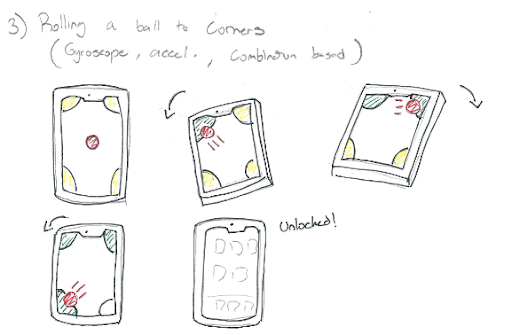 3) Rolling a ball to corners
(Gyroscope, accel., Combination based)
Unlocked!